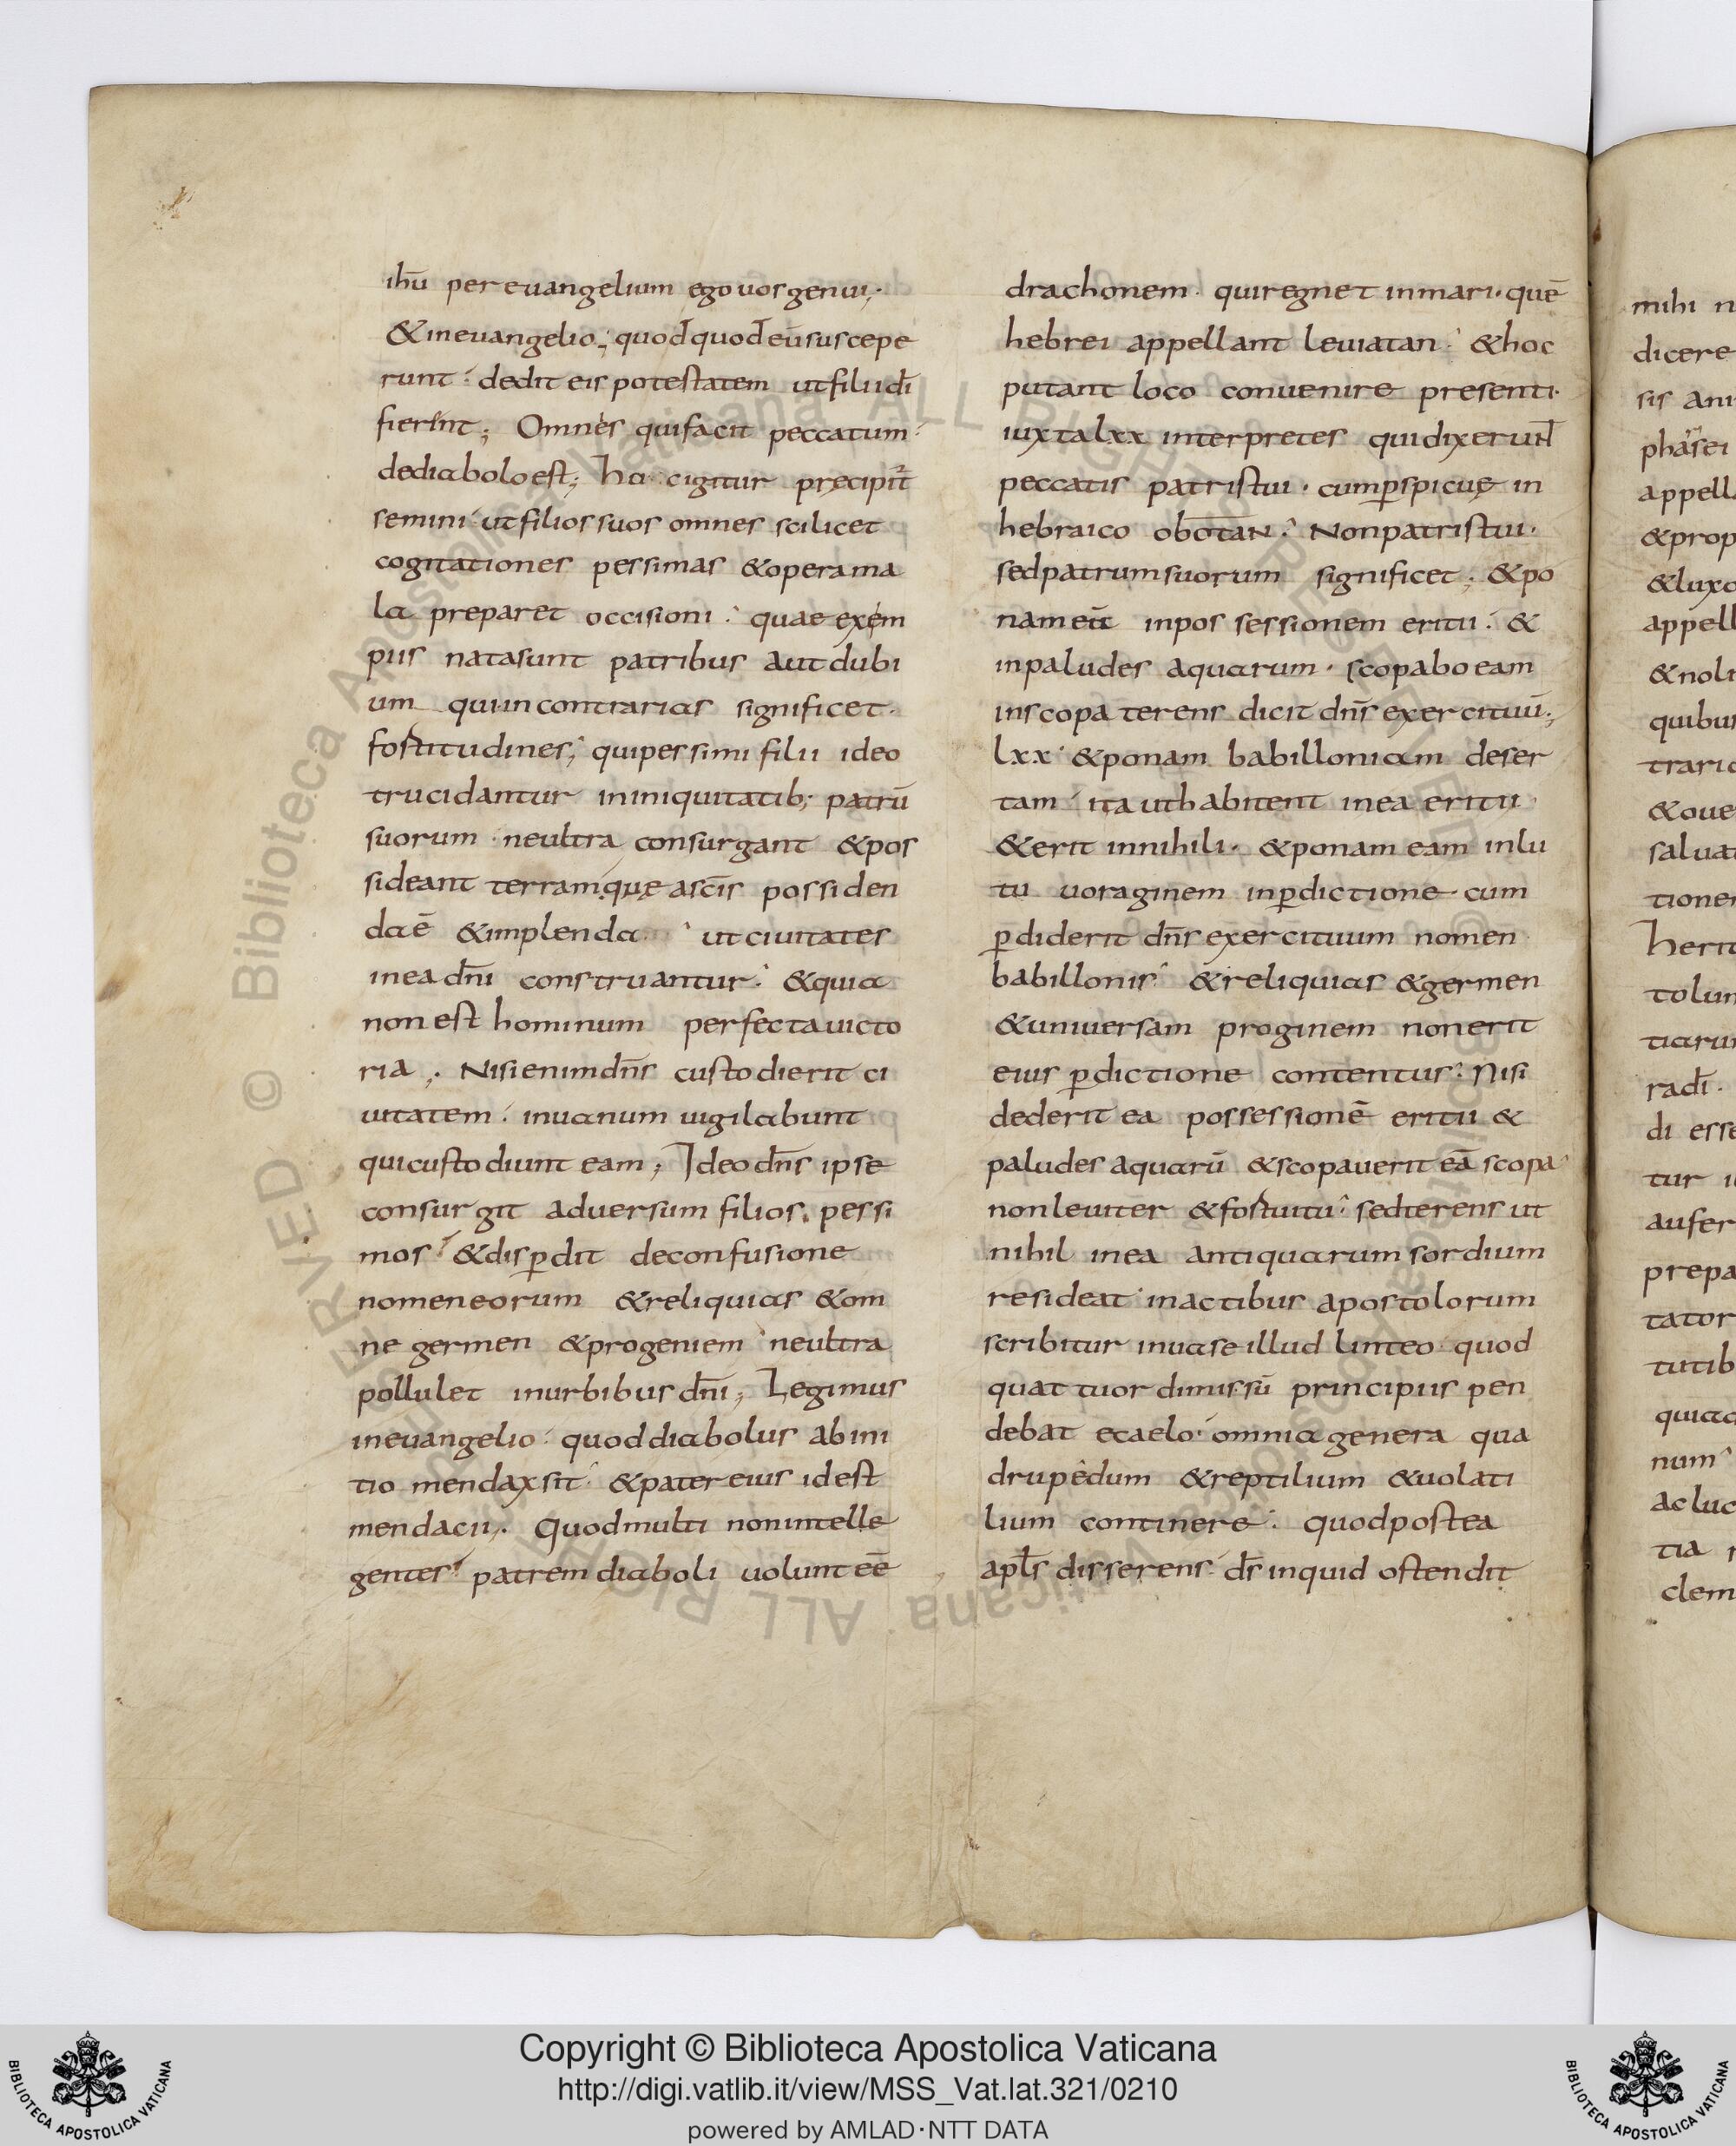 ihū per euangelium ego uos genui;
& in euangelio; quodquod eū suscepe
runt dedit eis potestatem ut filii dī
fierint; Omnes qui facit peccatum
de diabolo est; hac igitur precipit
semini ut filios suos omnes scilicet
cogitationes pessimas & opera ma
la preparet occisioni quae ex em
piis nata sunt patribus aut dubi
um qui in contrarias significet
fostitudines; qui pessimi filii ideo
trucidantur in iniquitatib; patrū
suorum ne ultra consurgant & pos
sideant terram que a scīs possiden
da ē & implenda ut ciuitates
in ea dn̄i construantur & quia
non est hominum perfecta uicto
ria; Nisi enim dn̄s custodierit ci
uitatem in uanum uigilabunt
qui custodiunt eam; Ideo dn̄s ipse
consurgit aduersum filios pessi
mos & disꝑdit de confusione
nomen eorum & reliquias & om
ne germen & progeniem ne ultra
pollulet in urbibus dn̄i; Legimus
in euangelio quod diabolus ab ini
tio mendax sit & pater eius id est
mendacii; Quod multi non intelle
gentes patrem diaboli uolunt eē
drachonem qui regnet in mari quē
hebrei appellant leuiatan & hoc
putant loco conuenire presenti
iuxta lxx interpretes qui dixerunt
peccatis patris tui cum ꝑspicuę in
hebraico obotan Non patris tui
sed patrum suorum significet; & po
nam eā in possessionem eritii &
in paludes aquarum scopabo eam
in scopa terens dicit dn̄s exercituū;
lxx & ponam babilloniam deser
tam ita ut habitent in ea eritii
& erit in nihili & ponam eam in lu
tu uoraginem in ꝑdictione cum
ꝑdiderit dn̄s exercituum nomen
babillonis & reliquias & germen
& uniuersam proginem non erit
eius ꝑdictione contentus Nisi
dederit ea possessionē eritii &
paludes aquarū & scopauerit eā scopa
non leuiter & fostuitu sed terens ut
nihil in ea antiquarum sordium
resideat in actibus apostolorum
scribitur in uase illud linteo quod
quattuor dimissū principiis pen
debat e caelo omnia genera qua
drupedum & reptilium & uolati
lium continere quod postea
apl̄s disserens ds̄ inquid ostendit
mihi n
dicere
sis ani
appell
& prop
& luxo
appell
& noli
quibus
trario
& oue
salua
tione
herit
tolun
ticaru
ra dī
di esse
tur i
aufer
prepa
tator
tutib
quia
num
ac luc
tia
clem
Copyright © Biblioteca Apostolica Vaticana
http://digi.vatlib.it/view/MSS_Vat.lat.321/0210
powered by AMLAD·NTT DATA
BIBLIOTECA APOSTOLICA VATICANA
BIBLIOTECA APOSTOLICA VATICANA